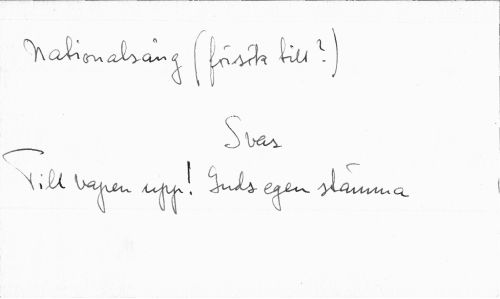 Nationalsång (försök till?)
Svas
Till vapen upp! Guds egen stämma